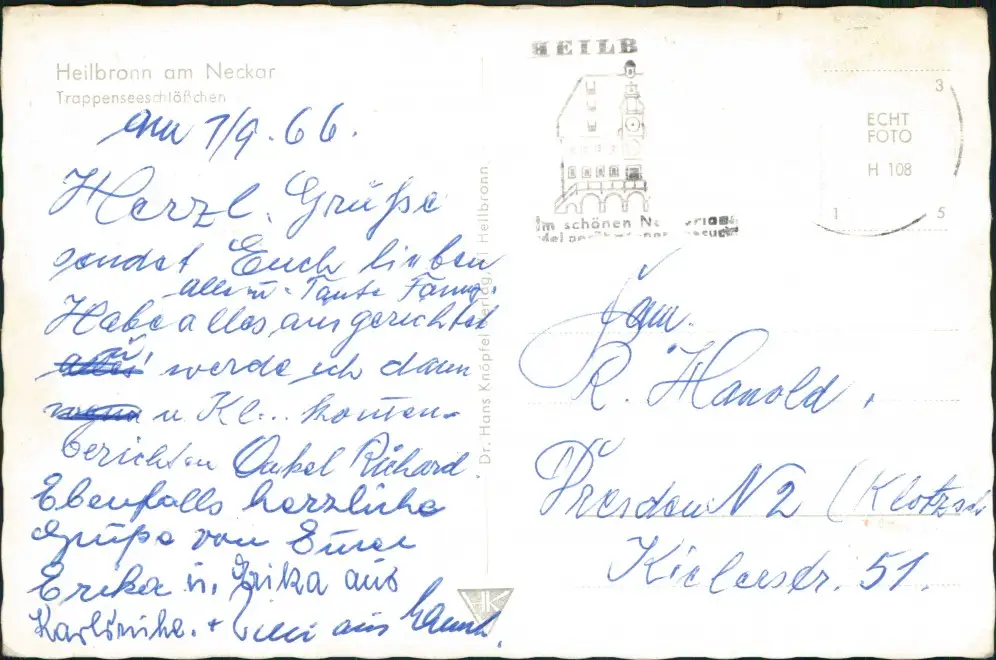 Heilbronn am Neckar
Trappenseeschlößchen
am 1/9.66.
Herzl. Grüße
sendet Euch lieben
allen u. Tante Fanny.
Habe alles ausgerichtet
u. werde ich dann
u. Kl... kommen
berichten Onkel Richard
Ebenfalls herzliche
Grüße von Eurer
Erika u. Erika aus
Karlsruhe. + aus
Dr. Hans Knöpfel Verlag, Heilbronn
HK
HEILB
Im schönen
ECHT
FOTO
H 108
3
1
5
Fam.
R. Hanold,
Dresden N 2 (Klotzsch
Kielerstr. 51.